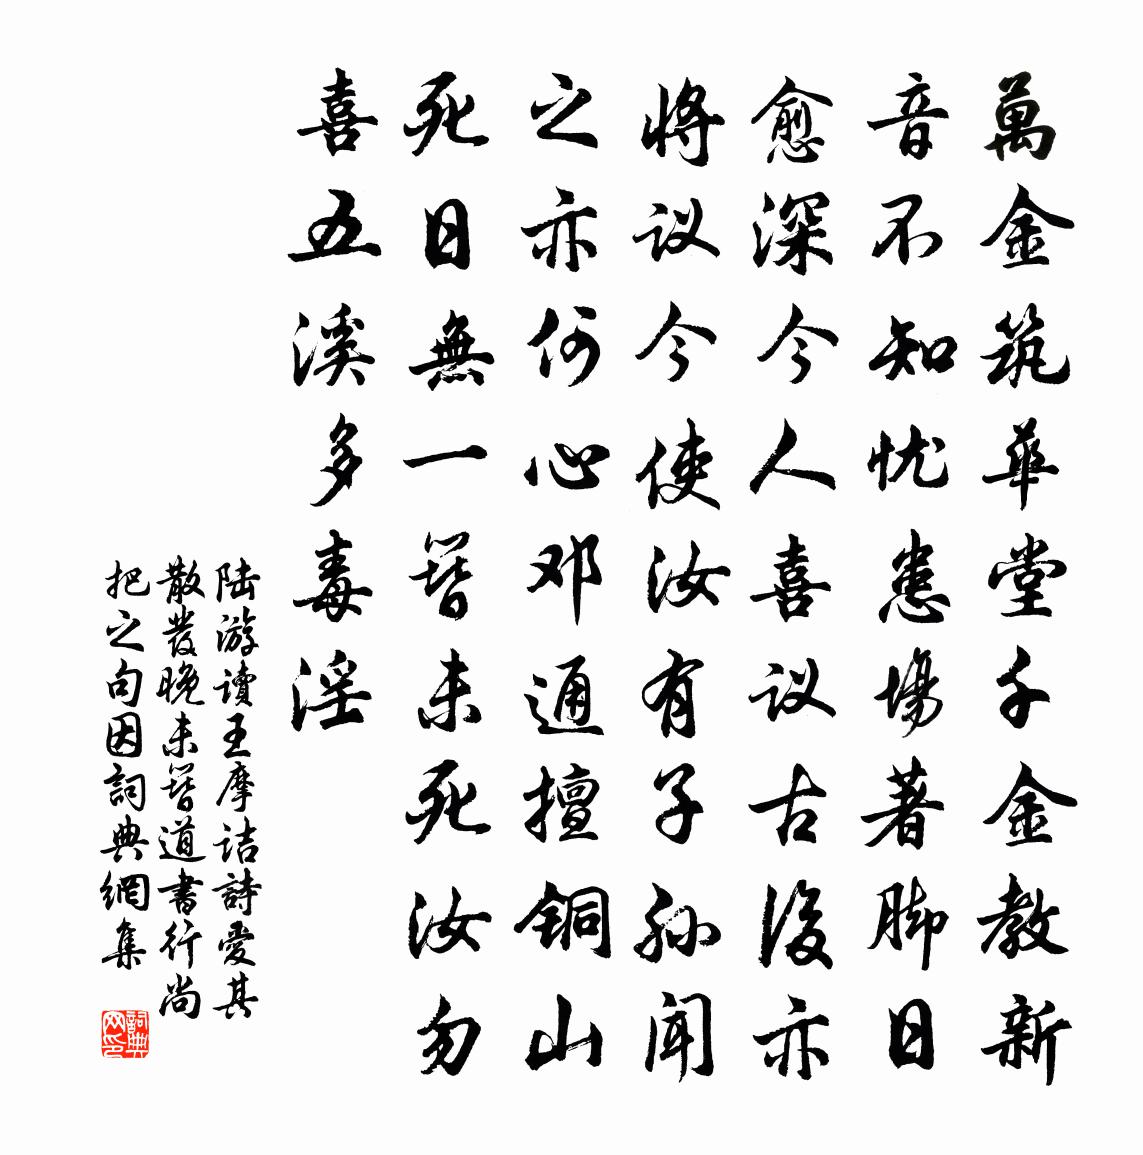 萬金筑華堂千金教新
音不知忧患場著脚日
愈深今人喜议古後亦
将议今使汝有子孙闻
之亦何心邓通擅铜山
死日無一簪未死汝勿
喜五溪多毒淫
陆游讀王摩诘詩愛其
散發晚未簪道書行尚
把之句因詞典網集
詞典网印